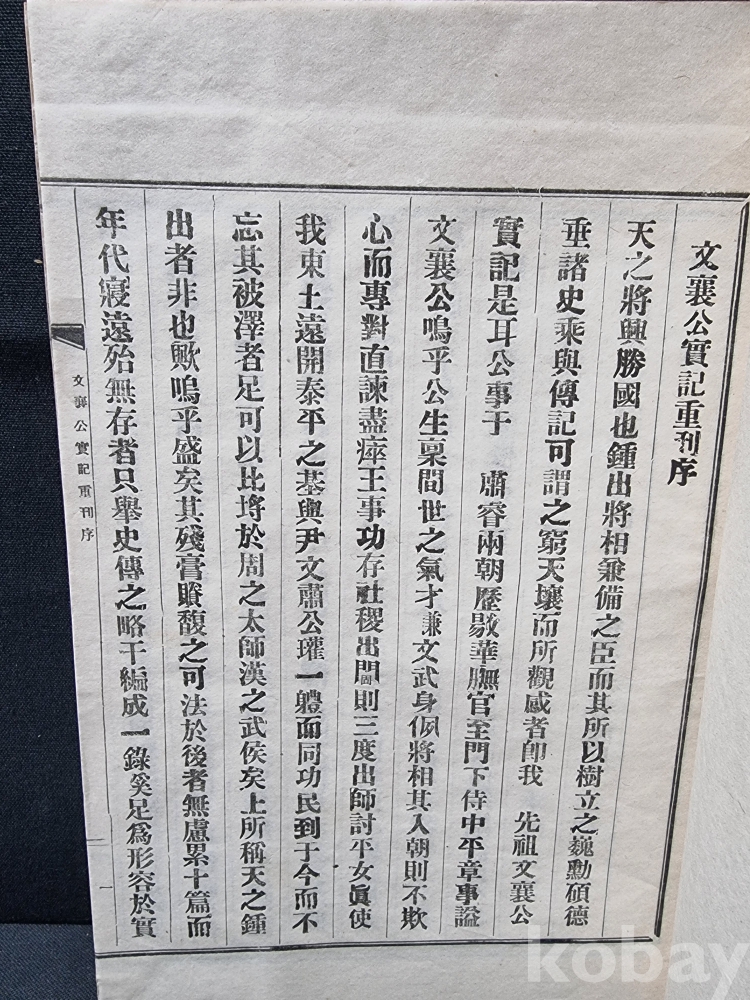 文襄公實記重刊序
天之將興勝國也鍾出將相兼備之臣而其所以樹立之巍勳碩德
垂諸史乘與傳記可謂之窮天壤而所觀感者卽我　先祖文襄公
實記是耳公事于　肅睿兩朝歷敭華膴官至門下侍中平章事謚
文襄公嗚乎公生稟間世之氣才兼文武身佩將相其入朝則不欺
心而專對直諫盡瘁王事功存社稷出閫則三度出師討平女眞使
我東土遠開泰平之基與尹文肅公瓘一軆而同功民到于今而不
忘其被澤者足可以比埓於周之太師漢之武侯矣上所稱天之鍾
出者非也歟嗚乎盛矣其殘膏賸馥之可法於後者無慮累十篇而
年代寢遠殆無存者只擧史傳之略干編成一錄奚足爲形容於實
文襄公實記重刊序
一
kobay